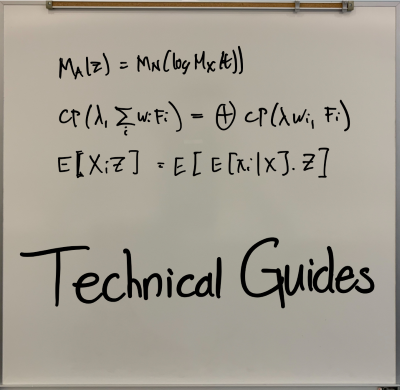 M_A(z) = M_N(log M_X(t))
CP(λ, Σ_i w_i F_i) = ⊕ CP(λw_i, F_i)
E[X_i Z] = E[E[X_i|X]. Z]
Technical Guides